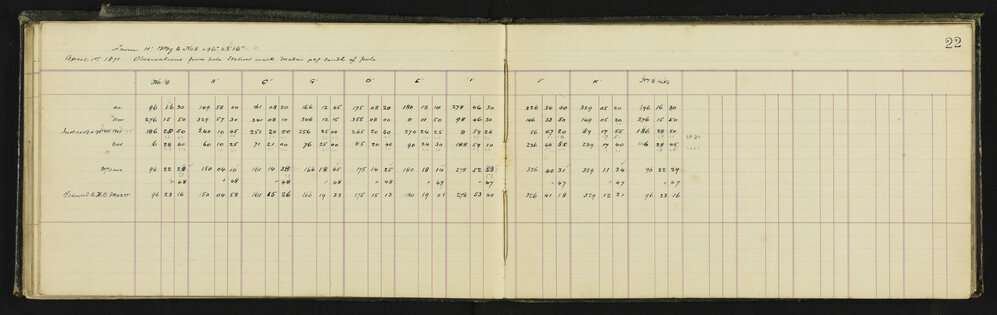 22
From H' Mtg to No 8 = 96° 23' 16"
April 1st 1871 Observations from pole Station mark under peg south of pole
No. 8 A' C' G' D' E' I' J' K' No. 8
00 96 16 30 149 58 00 161 08 30 166 12 45 175 08 20 180 12 10 278 46 30 326 34 00 329 05 20 96 16 30
180 276 15 50 329 57 30 341 08 10 346 12 15 355 08 00 0 11 50 98 46 30 146 33 50 149 05 20 276 15 50
186 28 50 240 10 45 251 20 50 256 25 00 265 20 60 270 24 25 8 59 26 56 47 20 59 17 55 186 28 50
6 28 40 60 10 25 71 21 00 76 25 00 85 20 40 90 24 30 188 59 10 236 46 55 239 17 40 6 28 45
Mean 96 22 28 150 04 10 161 14 38 166 18 45 175 14 25 180 18 14 278 52 53 326 40 31 329 11 34 96 22 29
+ 48 + 48 + 48 + 48 + 48 + 47 + 47 + 47 + 47 + 47
Reduced to 96 23 16 150 04 58 161 15 26 166 19 33 175 15 13 180 19 01 278 53 40 326 41 18 329 12 21 96 23 16